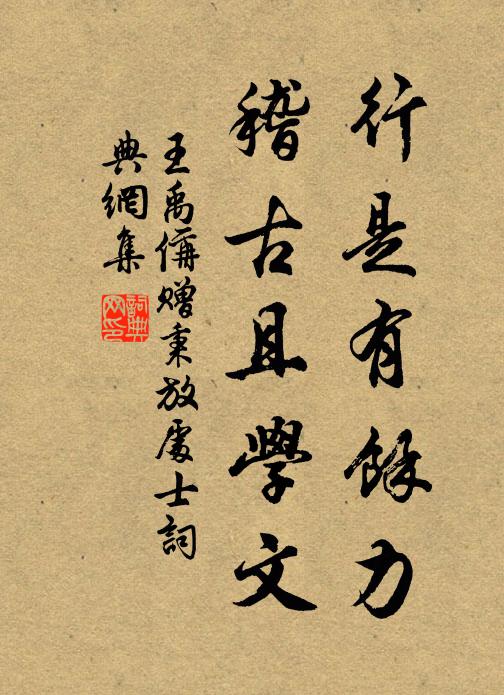 行是有餘力
稽古且學文
王禹偁贈秉放處士詞
典網集
詞典
网印